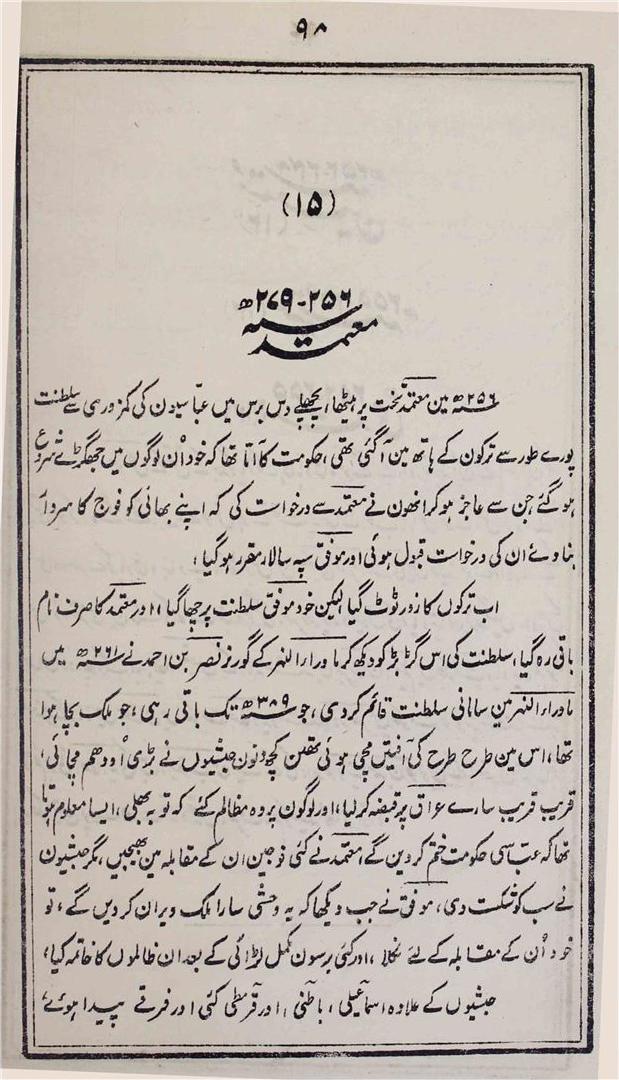 ۹۸
(۱۵)
۲۵۶-۲۷۹ھ
معتمد
۲۵۶ھ مین معتمد تخت پر بیٹھا، پچھلے دس برس میں عباسیون کی کمزوری سے سلطنت
پورے طور سے ترکون کے ہاتھ مین آگئی تھی، حکومت کا آنا تھا کہ خود اُن لوگوں میں جھگڑے شروع
ہوگئے جن سے عاجز ہوکر انھون نے معتمد سے درخواست کی کہ اپنے بھائی کو فوج کا سردار
بنادے ان کی درخواست قبول ہوئی اور موفق سپہ سالار مقرر ہوگیا؛
اب ترکوں کا زور ٹوٹ گیا لیکن خود موفق سلطنت پر چھا گیا، اور معتمد کا صرف نام
باقی رہ گیا، سلطنت کی اس گڑبڑ کو دیکھ کر ماوراء النہر کے گورنر نصر بن احمد نے ۲۶۱ھ میں
ماوراء النہر مین سامانی سلطنت قائم کردی، جو ۳۸۹ھ تک باقی رہی، جو ملک بچا ہوا
تھا، اس مین طرح طرح کی آفتیں مچی ہوئی تھین کچھ دنون حبشیوں نے بڑی اُودھم مچائی،
قریب قریب سارے عراق پر قبضہ کرلیا، اور لوگون پر وہ مظالم کئے کہ توبہ بھلی، ایسا معلوم ہوتا
تھا کہ عباسی حکومت ختم کردین گے، معتمد نے کئی فوجین ان کے مقابلہ مین بھیجیں، مگر حبشیون
نے سب کو شکست دی، موفق نے جب دیکھا کہ یہ وحشی سارا ملک ویران کردیں گے، تو
خود اُن کے مقابلہ کے لئے نکلا، اور کئی برسون مکمل لڑائی کے بعد ان ظالموں کا خاتمہ کیا،
حبشیوں کے علاوہ اسماعیلی، باطنی، اور قرمطی کئی اور فرقے پیدا ہوئے،